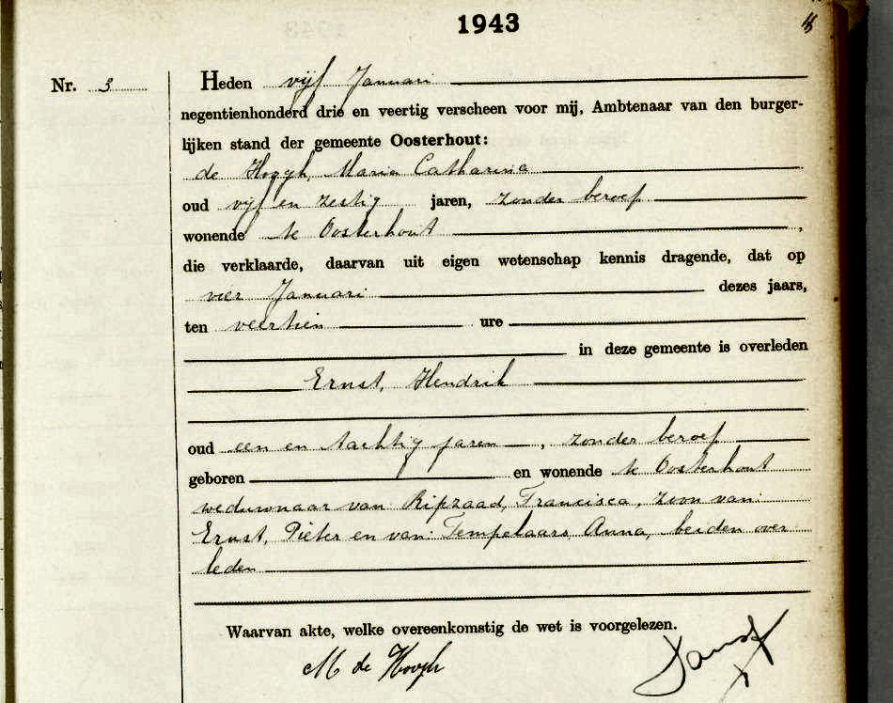 1943
Nr. 3
Heden vijf Januari
negentienhonderd drie en veertig verscheen voor mij, Ambtenaar van den burger-
lijken stand der gemeente Oosterhout:
de Hoogh, Maria Catharina
oud vijf en zestig jaren, zonder beroep
wonende te Oosterhout,
die verklaarde, daarvan uit eigen wetenschap kennis dragende, dat op
vier Januari dezes jaars,
ten veertien ure
in deze gemeente is overleden
Ernst, Hendrik
oud een en tachtig jaren, zonder beroep
geboren en wonende te Oosterhout
weduwnaar van: Ripzaad, Francisca, zoon van:
Ernst, Pieter en van: Tempelaars, Anna, beiden over
leden
Waarvan akte, welke overeenkomstig de wet is voorgelezen.
M de Hoogh